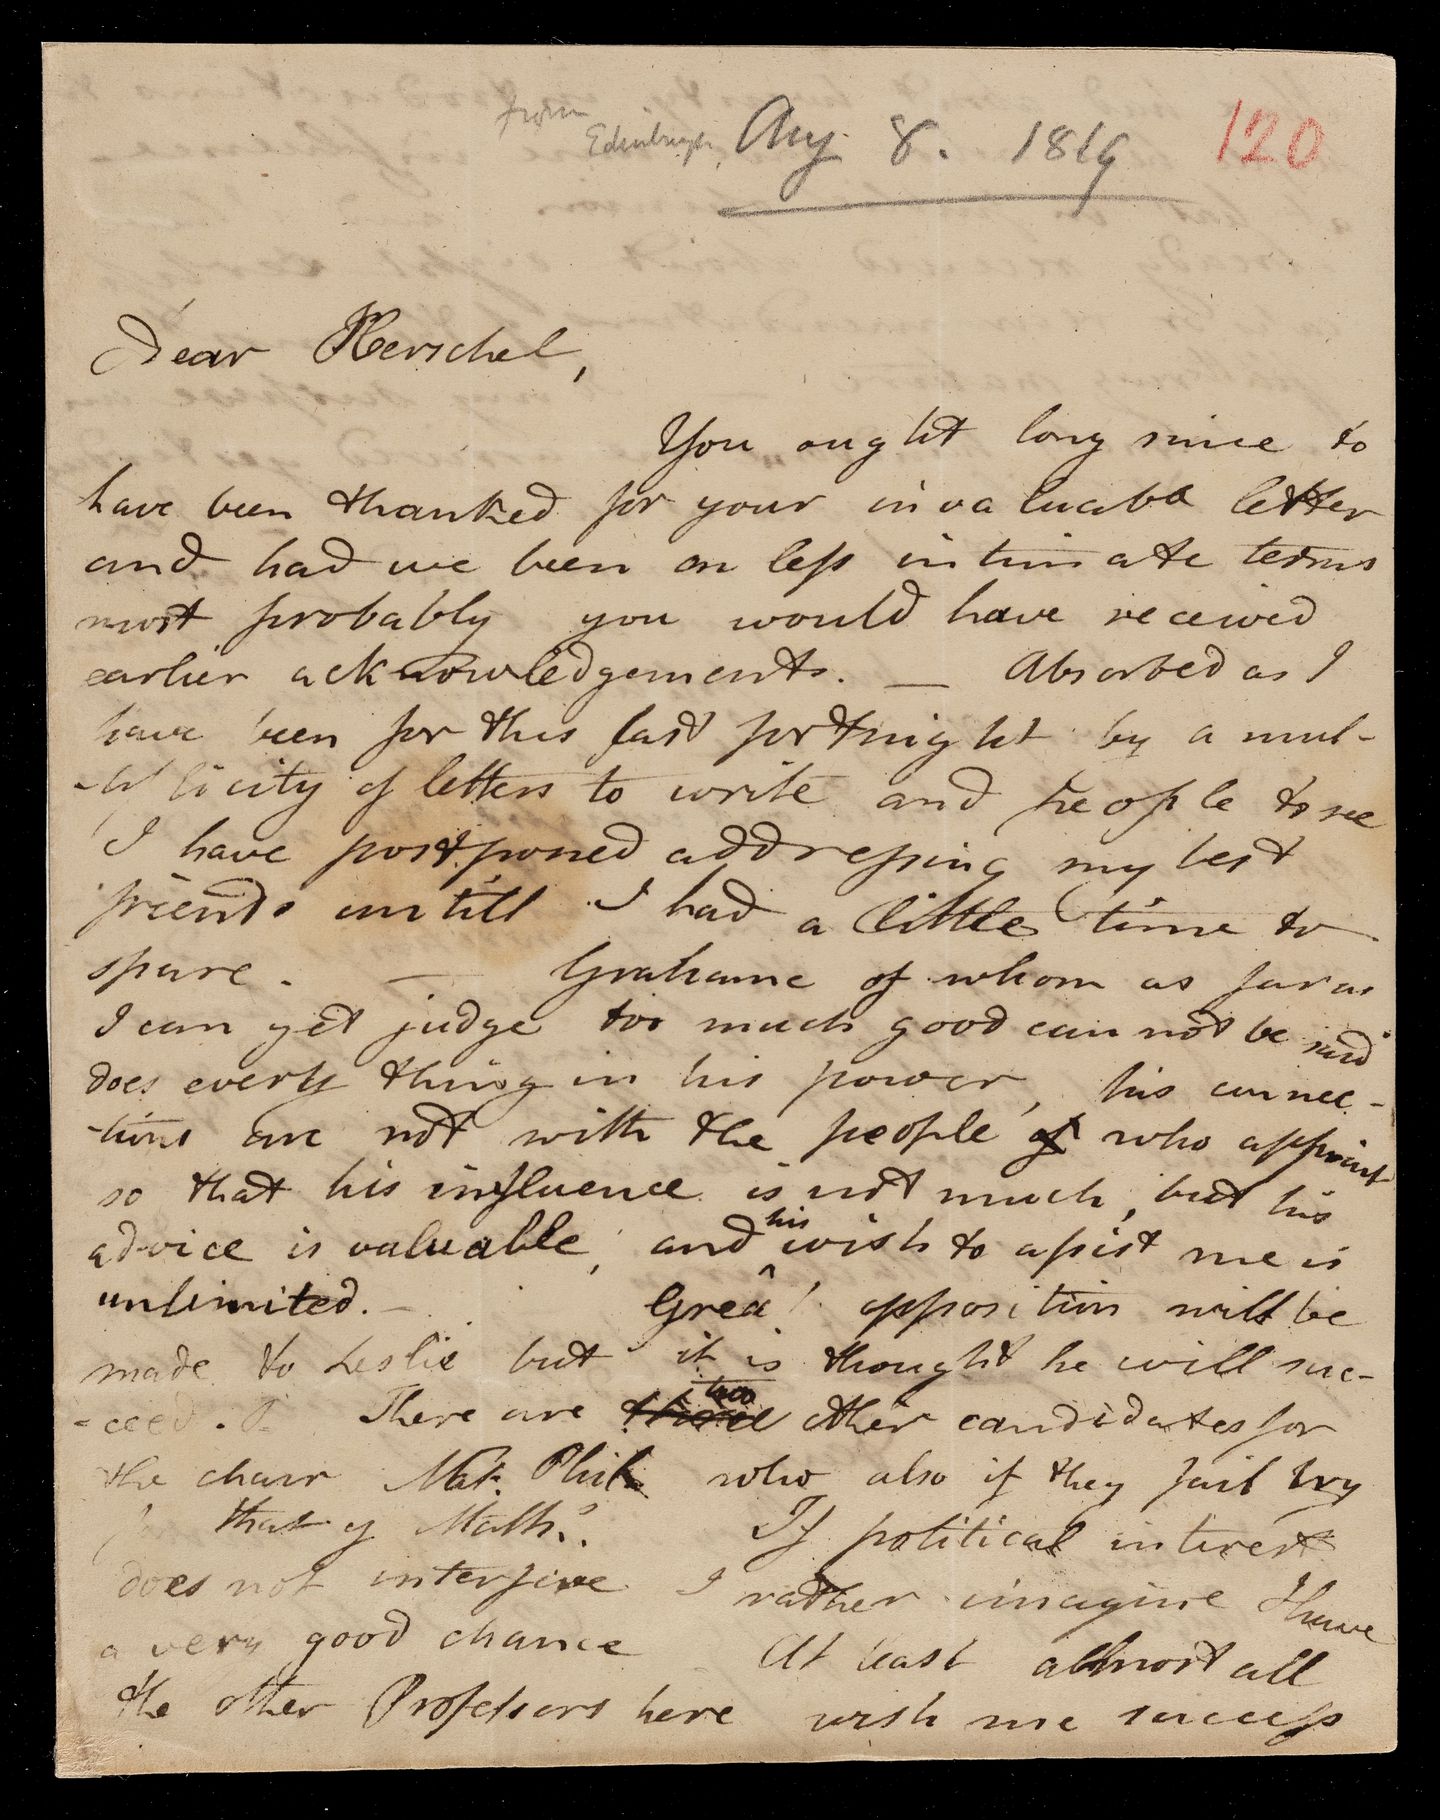 from
Edinburgh, Aug 8. 1819 120
Dear Herschel,
You ought long since to
have been thanked for your invaluable letter
and had we been on less intimate terms
most probably you would have received
earlier acknowledgements. — Absorbed as I
have been for this last fortnight by a mul-
-tiplicity of letters to write and people to see
I have postponed addressing my best
friends untill I had a little time to
spare. — Grahame of whom as far as
I can yet judge too much good can not be said
does every thing in his power, his connec-
-tions are not with the people of who appoint
so that his influence is not much, but his
advice is valuable, and his wish to assist me is
unlimited. — Great opposition will be
made to Leslie but it is thought he will suc-
-ceed. There are three two other candidates for
the chair Nat. Phil. who also if they fail try
that of Math.s. If political interest
does not interfere I rather imagine I have
a very good chance At least almost all
the other Professors here wish me success